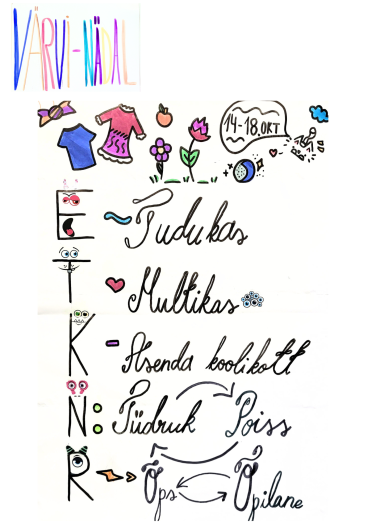 VÄRVI-NÄDAL
14-18.OKT
E ~ Tudukas
T Multikas
K - Asenda koolikott
N: Tüdruk Poiss
R Õps Õpilane